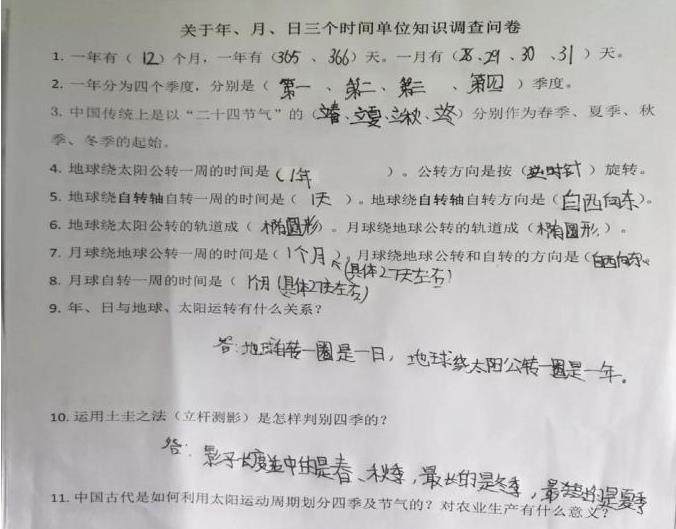 关于年、月、日三个时间单位知识调查问卷
1. 一年有（12）个月，一年有（365、366）天。一月有（28、29、30、31）天。
2. 一年分为四个季度，分别是（第一、第二、第三、第四）季度。
3. 中国传统上是以“二十四节气”的（立春、立夏、立秋、立冬）分别作为春季、夏季、秋
季、冬季的起始。
4. 地球绕太阳公转一周的时间是（1年）。公转方向是按（逆时针）旋转。
5. 地球绕自转轴自转一周的时间是（1天）。地球绕自转轴自转方向是（自西向东）。
6. 地球绕太阳公转的轨道成（椭圆形）。月球绕地球公转的轨道成（椭圆形）。
7. 月球绕地球公转一周的时间是（1个月）。月球绕地球公转和自转的方向是（自西向东）。
（具体27天左右）
8. 月球自转一周的时间是（1个月（具体27天左右）
9. 年、日与地球、太阳运转有什么关系？
答：地球自转一圈是一日，地球绕太阳公转一圈是一年。
10. 运用土圭之法（立杆测影）是怎样判别四季的？
答：影子长度适中的是春、秋季，最长的是冬季，最短的是夏季
11. 中国古代是如何利用太阳运动周期划分四季及节气的？对农业生产有什么意义？